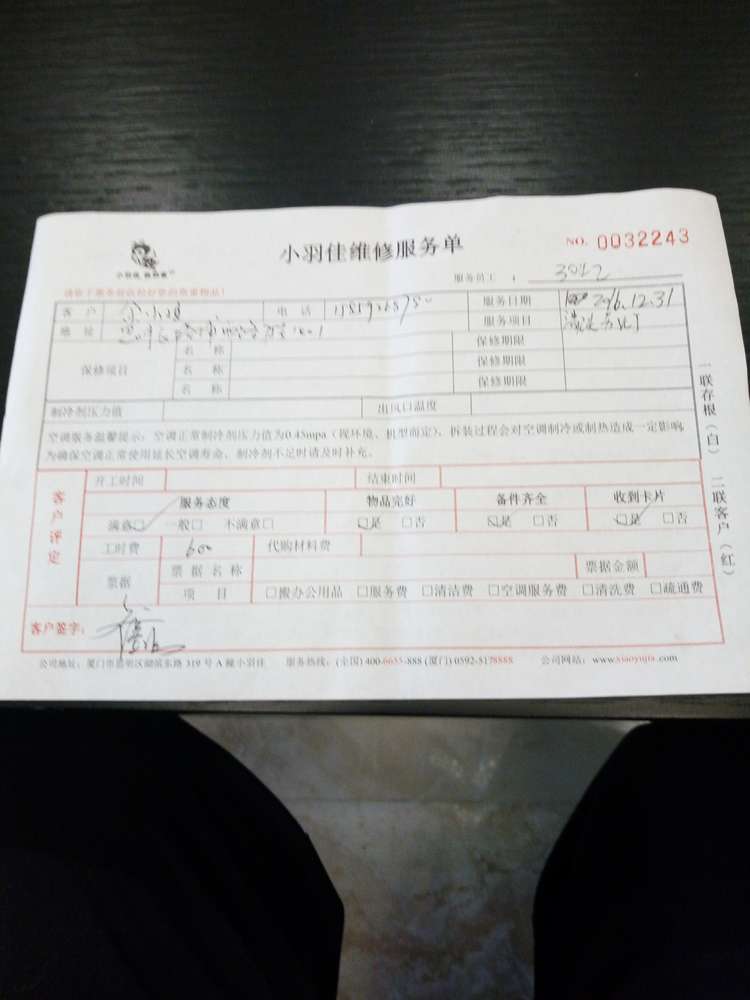 小羽佳维修服务单
NO. 0032243
服务员工： 3012
客 户
电 话
服务日期 2016.12.31
地 址
服务项目
保修项目
名 称
保修期限
名 称
保修期限
名 称
保修期限
制冷剂压力值
出风口温度
空调服务温馨提示：空调正常制冷剂压力值为0.45mpa（视环境、机型而定），拆装过程会对空调制冷或制热造成一定影响，
为确保空调正常使用延长空调寿命，制冷剂不足时请及时补充。
一联存根（白） 二联客户（红）
客户评定
开工时间
结束时间
服务态度
物品完好
备件齐全
收到卡片
满意☑ 一般□ 不满意□
☑是 □否
☑是 □否
☑是 □否
工时费 600
代购材料费
票据
票 据 名 称
票据金额
项 目
□搬办公用品 □服务费 □清洁费 □空调服务费 □清洗费 □疏通费
客户签字：
公司地址：厦门市思明区湖滨东路 319 号 A 幢小羽佳 服务热线：(全国) 400-6655-888 (厦门) 0592-5178888 公司网站：www.xiaoyujia.com